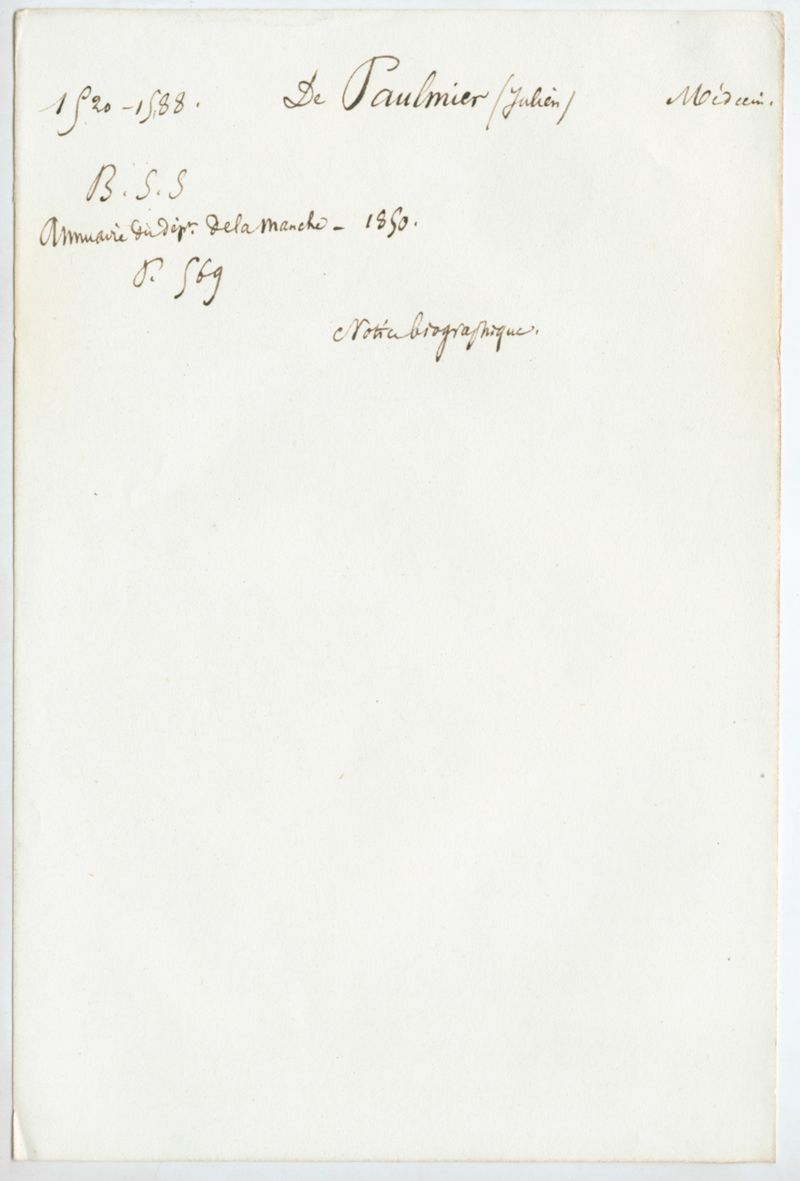 1520-1588. De Paulmier (Julien) Médecin.
B.S.S
Annuaire du dépt. de la Manche - 1850.
P. 569
Notice biographique.